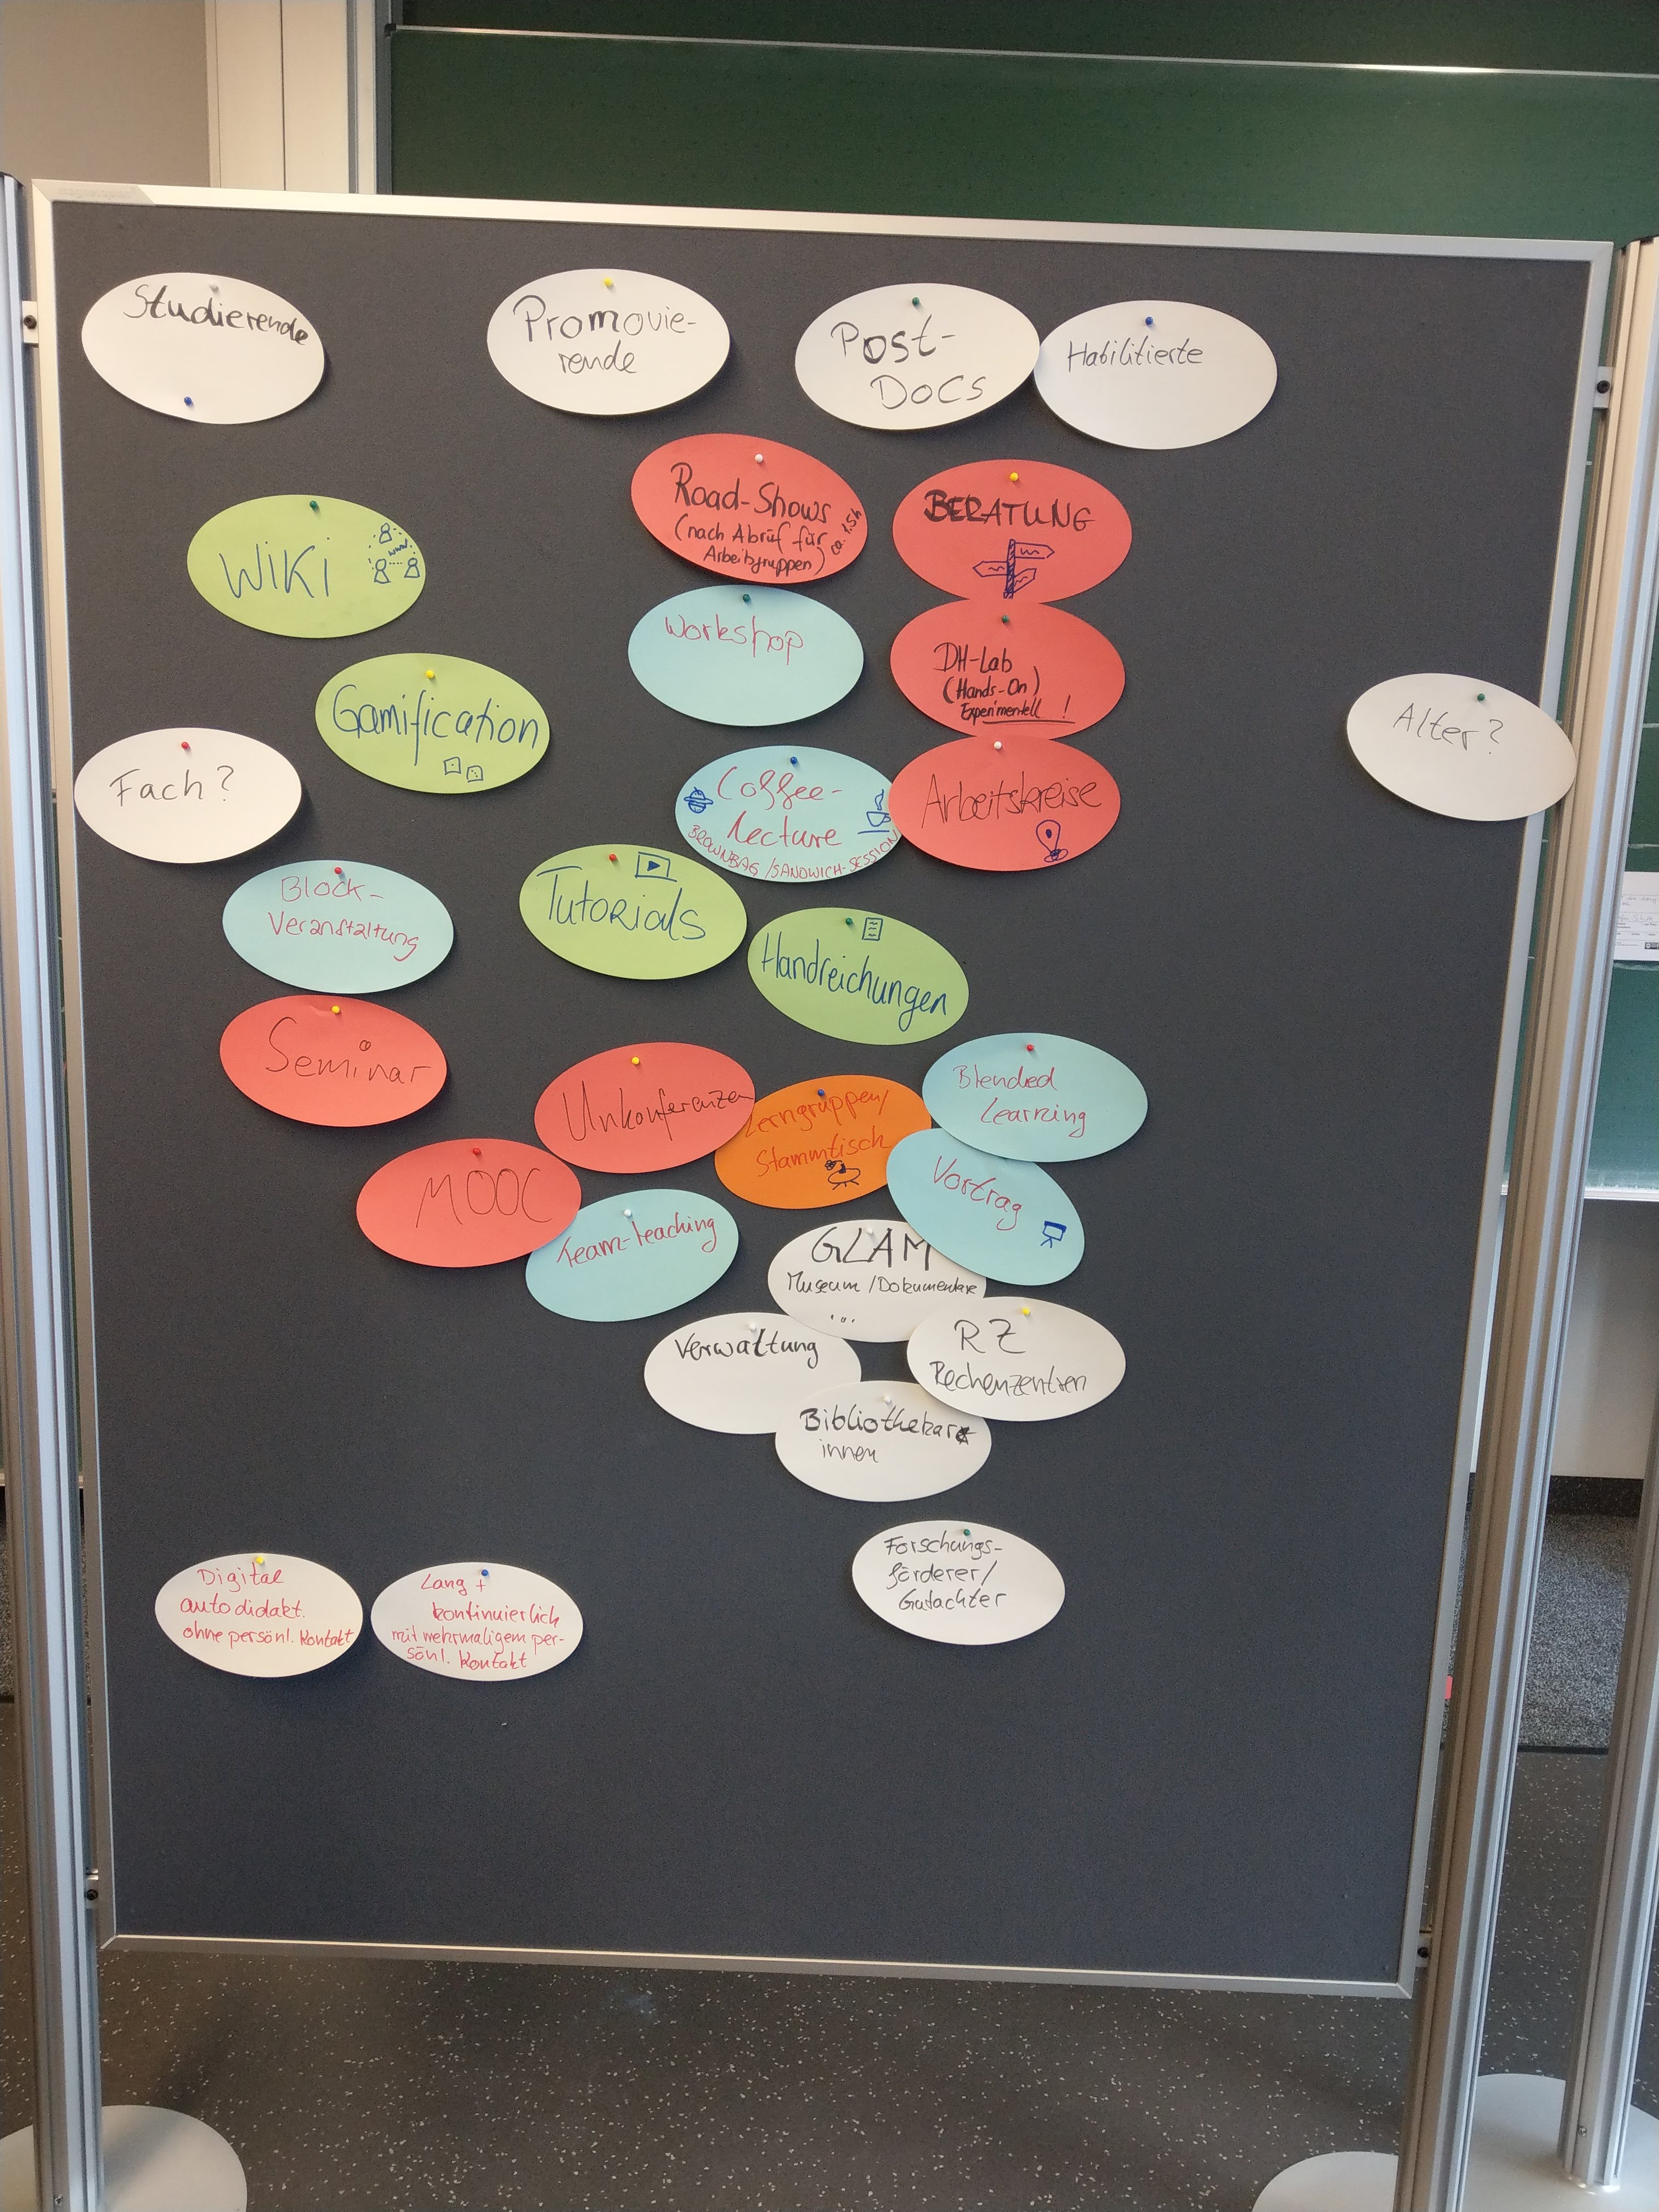 Studierende
Promovie-
rende
Post-
Docs
Habilitierte
Road-Shows
(nach Abruf für
Arbeitsgruppen)
ca. 1.5h
BERATUNG
WIKI
www
Workshop
DH-Lab
(Hands-On)
Experimentell !
Gamification
Alter?
Fach?
Coffee-
Lecture
BROWNBAG/SANDWICH-SESSION
Arbeitskreise
Block-
Veranstaltung
Tutorials
Handreichungen
Seminar
Unkonferenzen
Lerngruppen/
Stammtisch
Blended
Learning
MOOC
Team-teaching
Vortrag
GLAM
Museum/Dokumentare
...
Verwaltung
RZ
Rechenzentren
Bibliothekar*
innen
Forschungs-
förderer/
Gutachter
Digital
autodidakt.
ohne persönl. Kontakt
Lang +
kontinuierlich
mit mehrmaligem per-
sönl. Kontakt